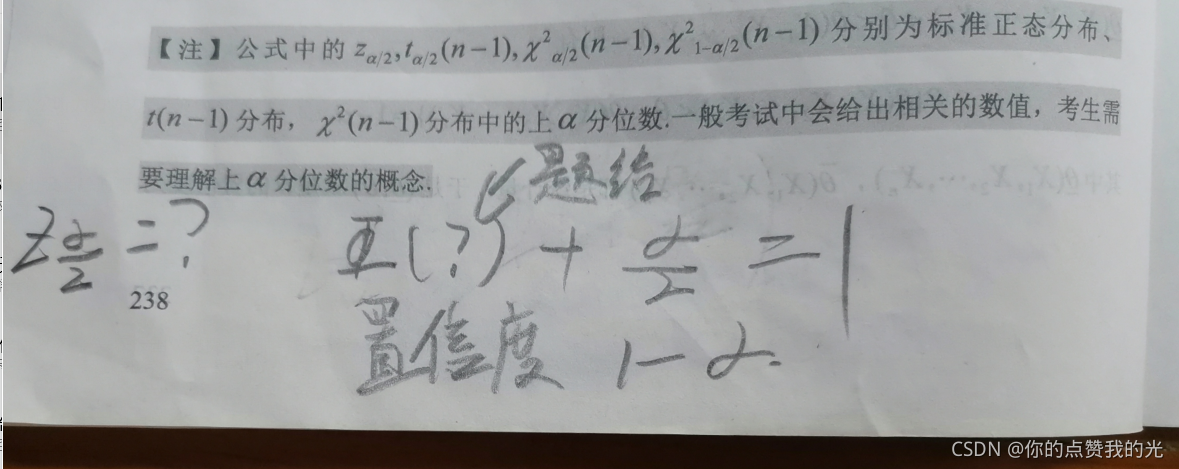 【注】公式中的 z_{α/2}, t_{α/2}(n−1), χ²_{α/2}(n−1), χ²_{1−α/2}(n−1) 分别为标准正态分布、
t(n−1) 分布， χ²(n−1) 分布中的上 α 分位数.一般考试中会给出相关的数值，考生需
要理解上 α 分位数的概念.
题给
Z_{α/2} = ?
Φ(?) + α/2 = 1
238
置信度 1−α.
CSDN @你的点赞我的光